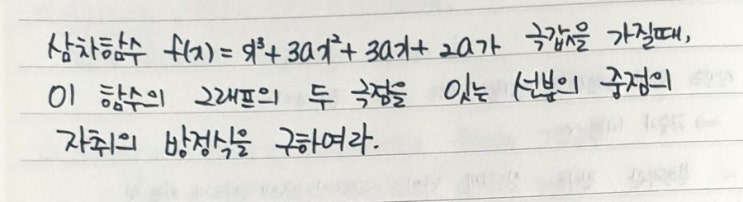 삼차함수 f(x) = x³ + 3ax² + 3ax + 2a가 극값을 가질때,
이 함수의 그래프의 두 극점을 잇는 선분의 중점의
자취의 방정식을 구하여라.